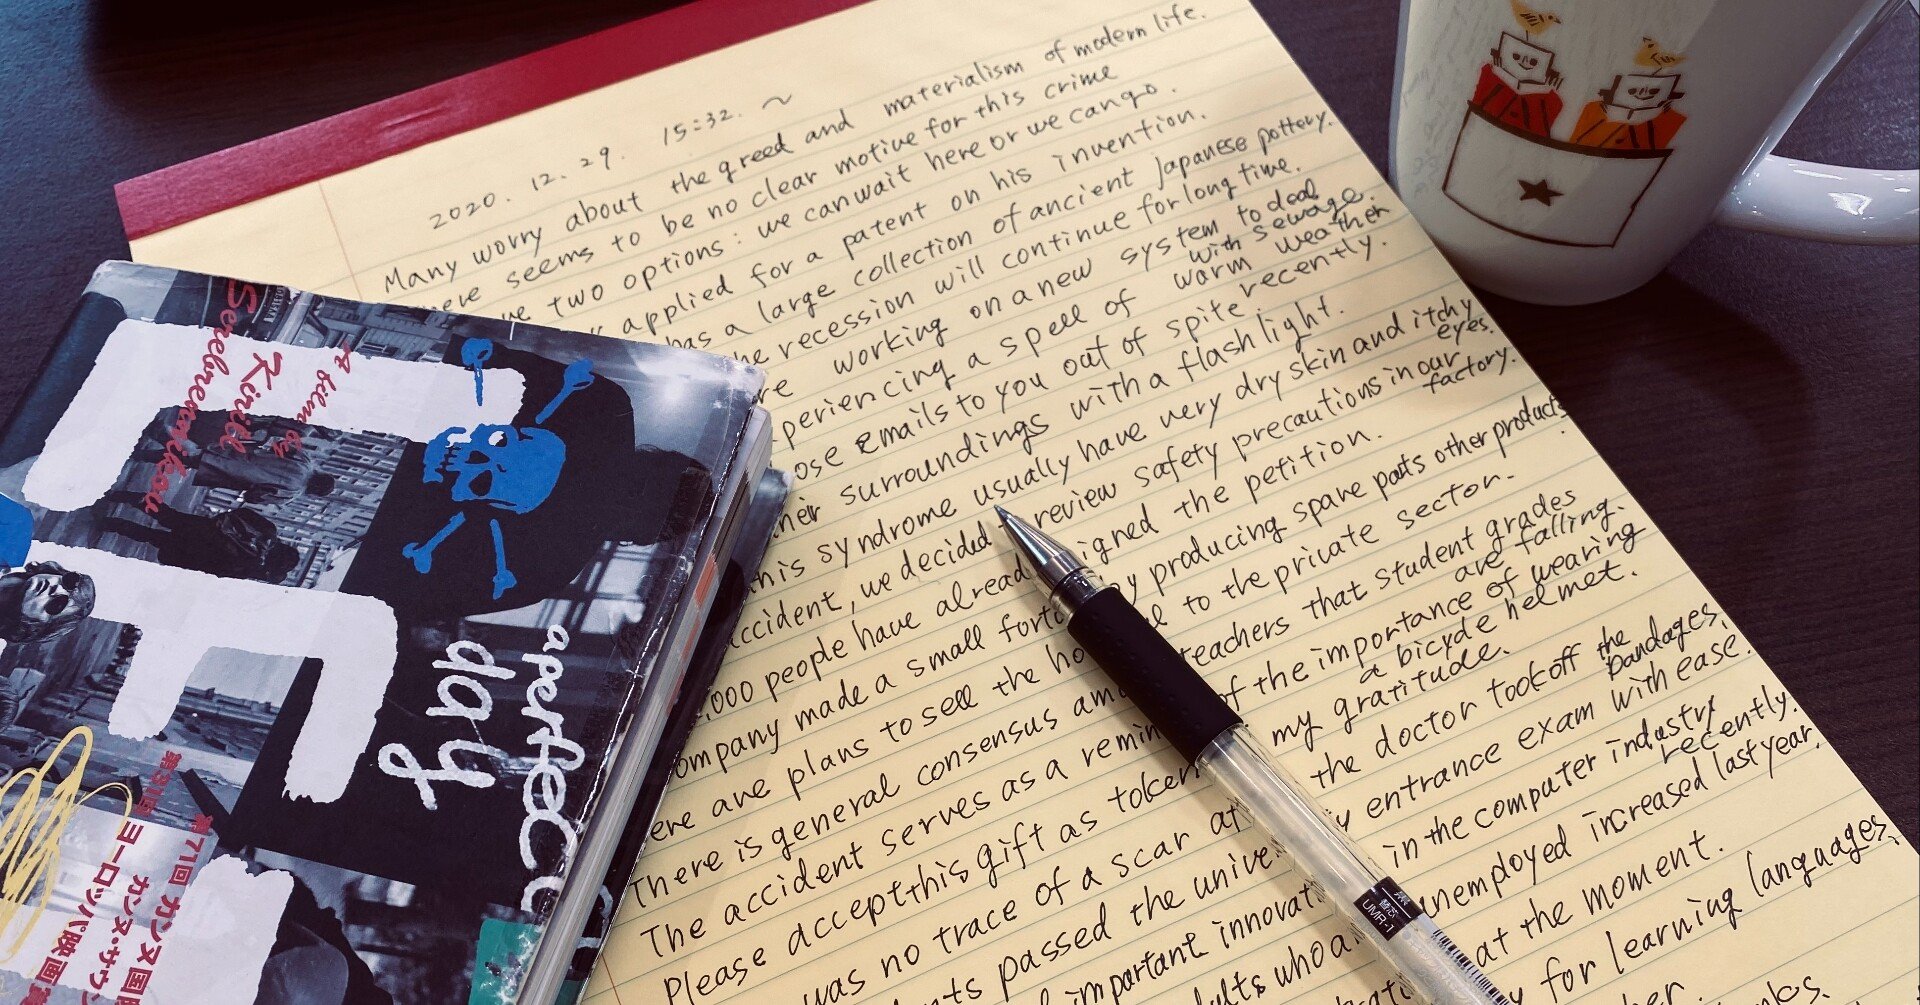 2020. 12. 29. 15:32. ~
Many worry about the greed and materialism of modern life.
seems to be no clear motive for this crime
two options: we can wait here or we can go.
applied for a patent on his invention.
has a large collection of ancient Japanese pottery.
recession will continue for long time.
working on a new system to deal
with sewage.
a spell of warm weather
recently.
emails to you out of spite
surroundings with a flash light.
syndrome usually have very dry skin and itchy
eyes.
accident, we decided review safety precautions in our
factory.
000 people have the petition.
made a small producing spare parts other products
are plans to sell the to the private sector.
There is general consensus teachers that student grades
are falling.
The accident serves as a of the importance of wearing
a bicycle helmet.
Please accept this gift as token my gratitude.
was no trace of a scar the doctor took off the
bandages,
passed the entrance exam with ease.
important in the computer industry
recently.
who unemployed increased last year.
at the moment.
for learning languages,
A film by
Kirill
Serebrennikov
a perfect
day
第71回 カンヌ国
カンヌ・サウン
第31回 ヨーロッパ映画
UMR-1